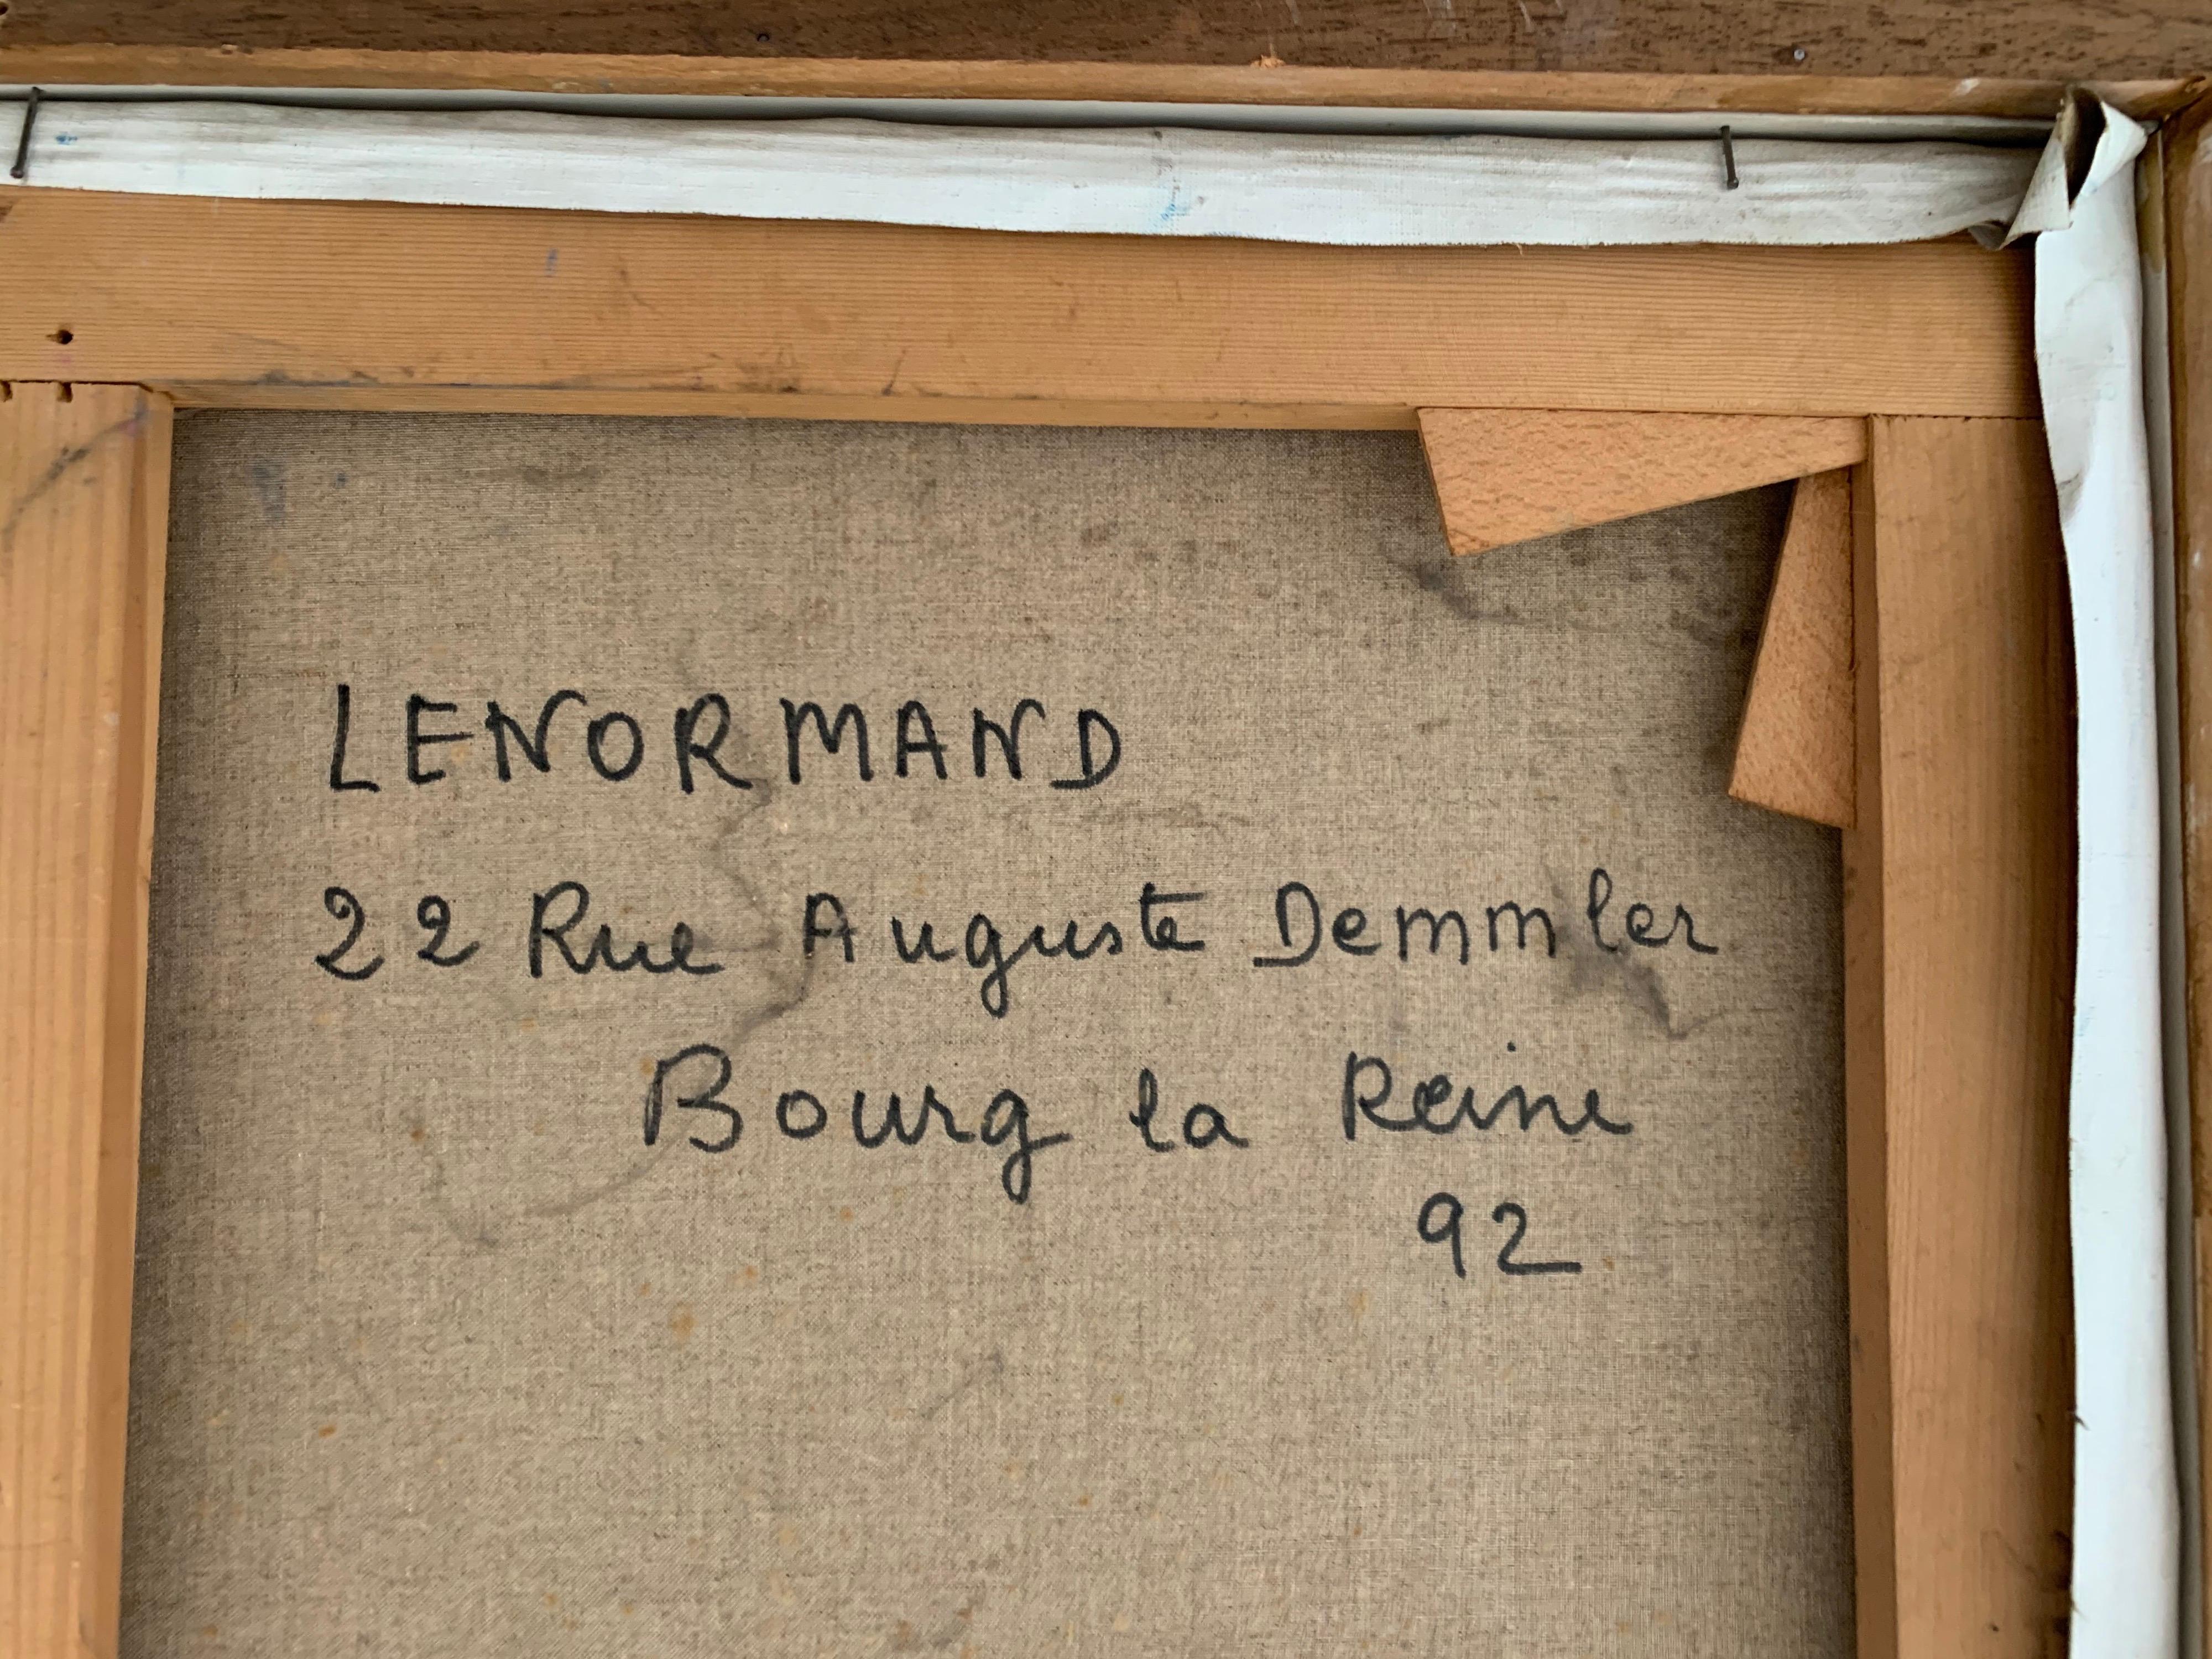 LENORMAND
22 Rue Auguste Demmler
Bourg la Reine
92